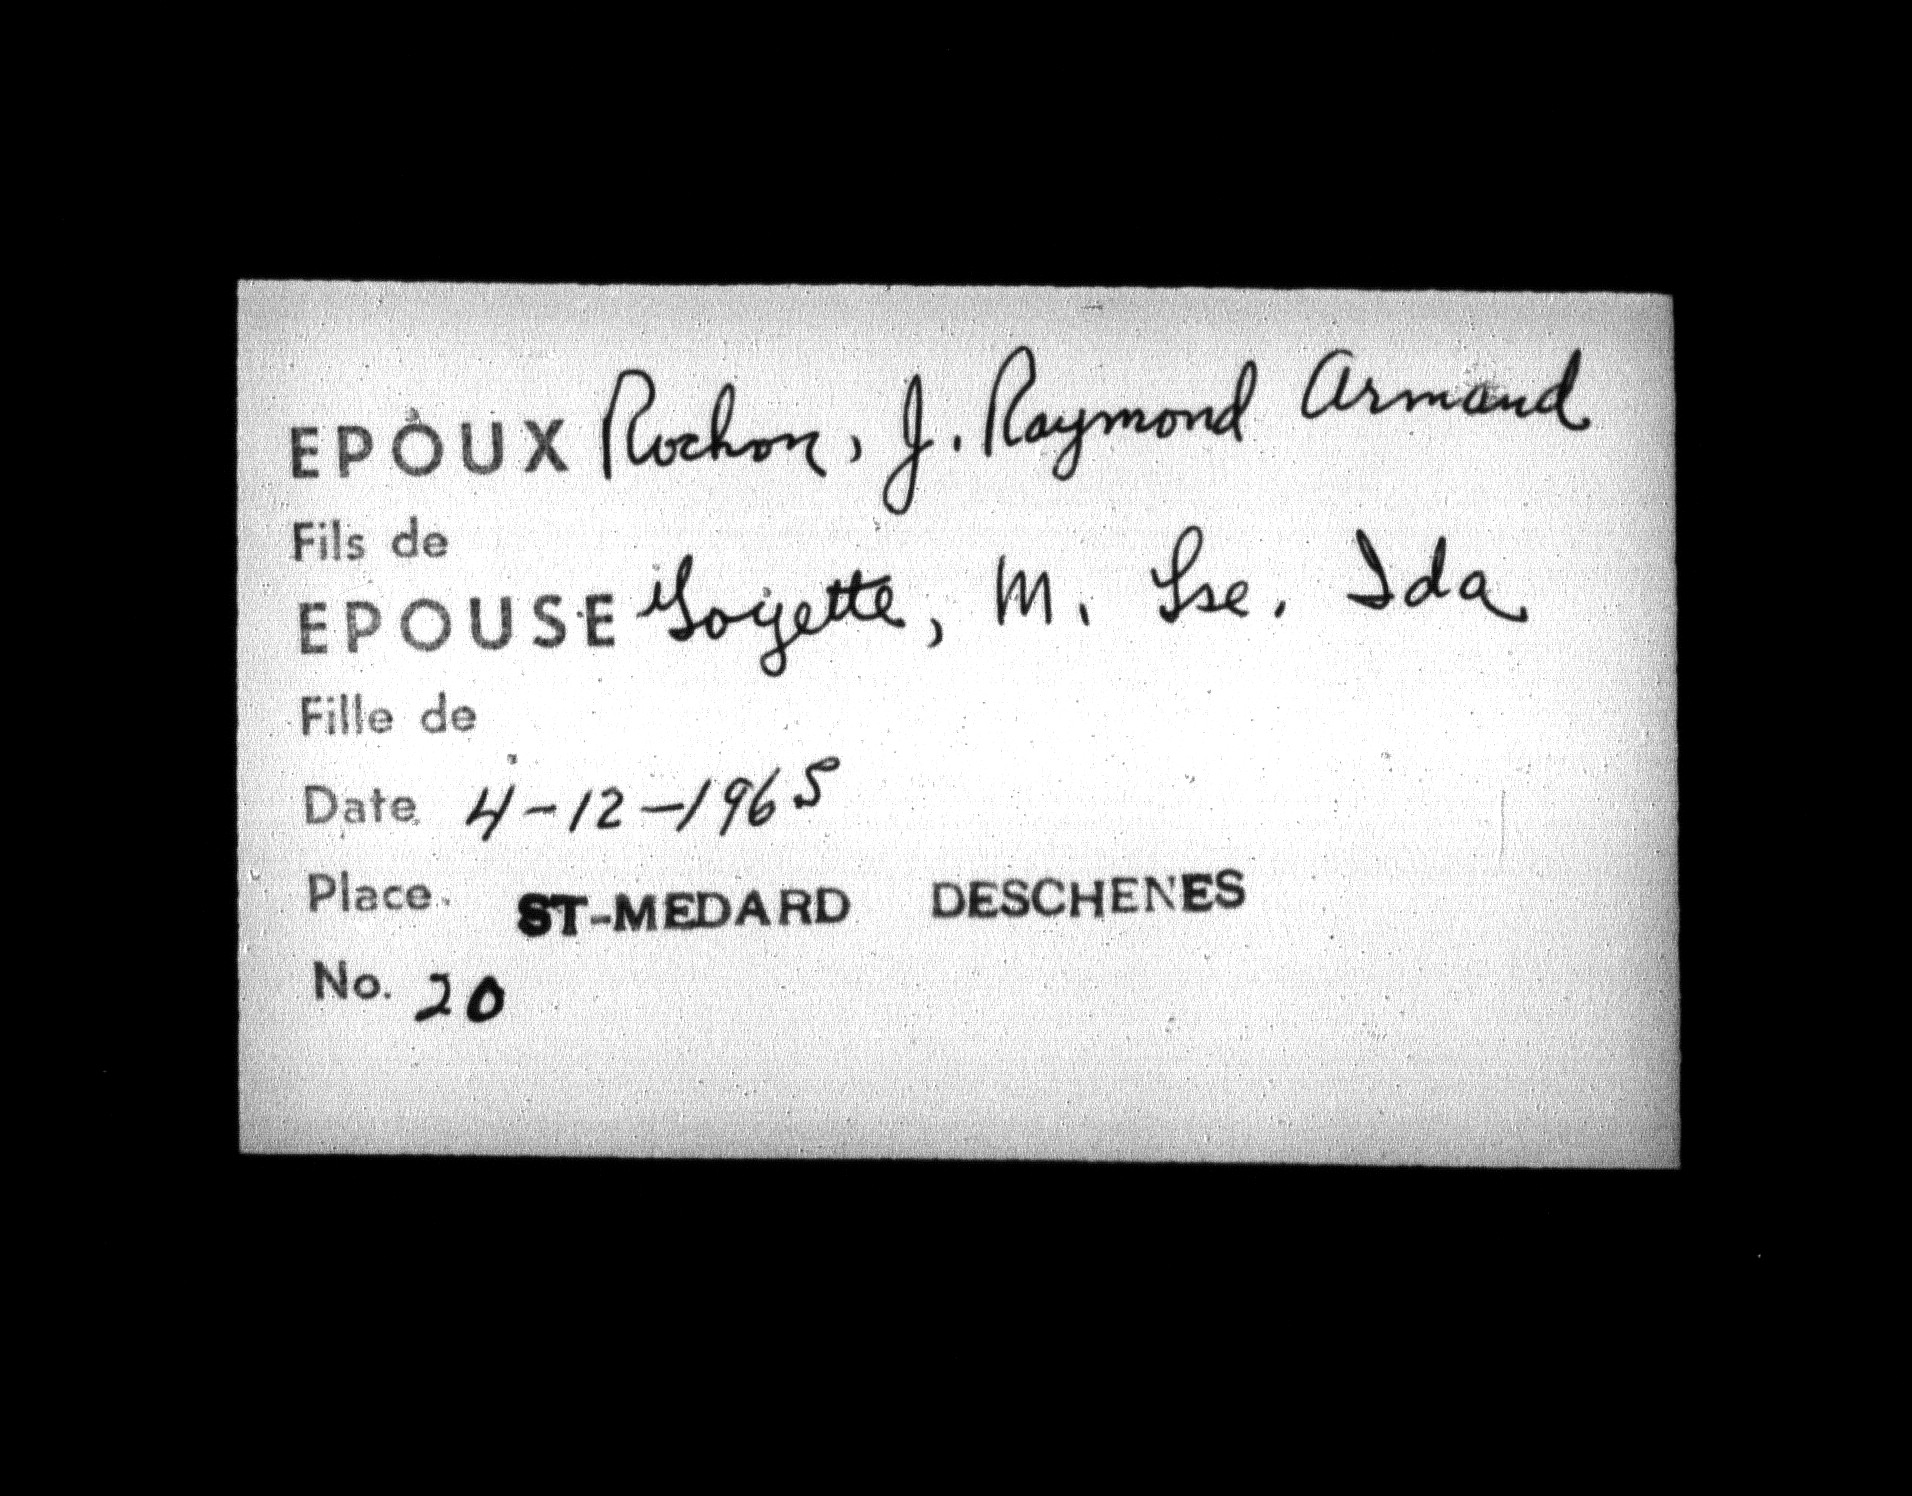 EPOUX Rochon, J. Raymond Armand
Fils de
EPOUSE Goyette, M. Lse. Ida
Fille de
Date 4-12-1965
Place. ST-MEDARD DESCHENES
No. 20